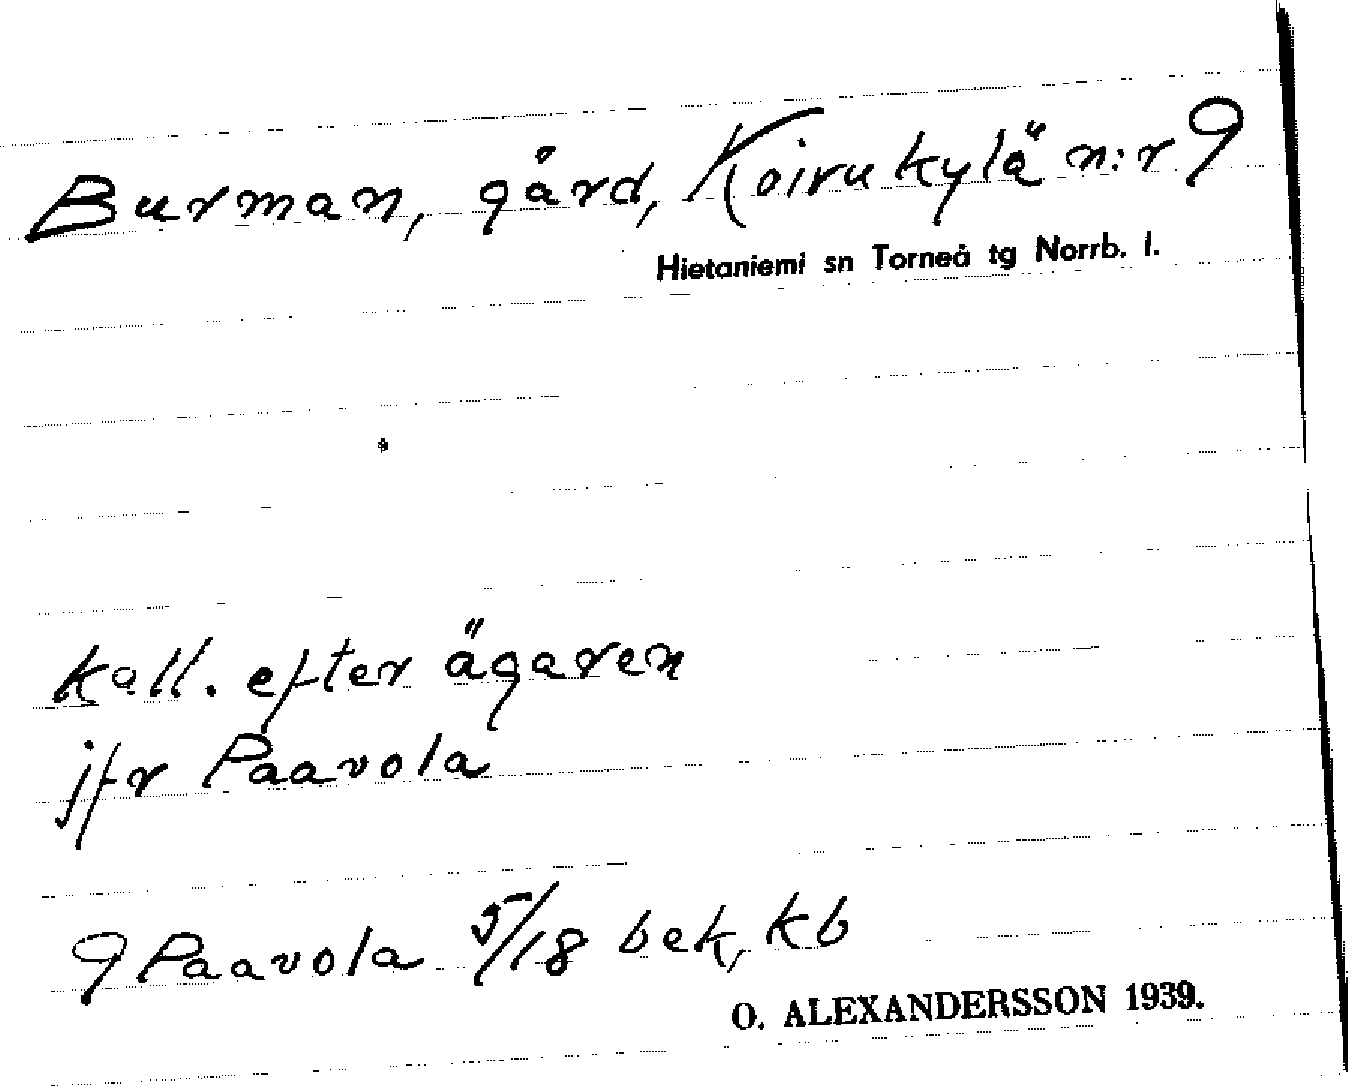 Burman, gård, Koirukylä n:r 9
Hietaniemi sn Torneå tg Norrb. l.
kall. efter ägaren
jfr Paavola
9 Paavola 5/18 bek, kb
O. ALEXANDERSSON 1939.